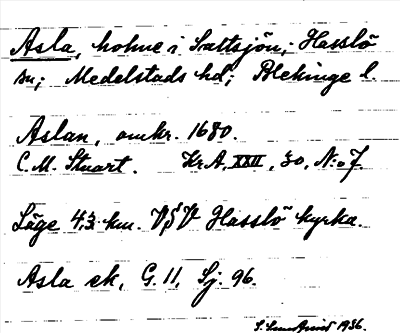 Asla, holme i Saltsjön, Hasslö
sn; Medelstads hd; Blekinge l.
Aslan, omkr. 1680.
C.M. Stuart. Kr.A, XXII, 30, No 7.
Läge 4,3 km. VSV Hasslö kyrka.
Asla ek, G. 11, Sj. 96.
1936.